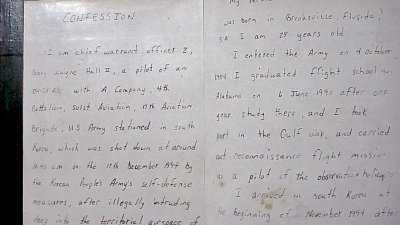 CONFESSION
I am chief warrant officer 2,
Boby Wayne Hall II, a pilot of an
OH-58 A/c with A Company, 4th
Battalion, 501st Aviation, 17th Aviation
Brigade, US Army stationed in south
Korea, which was shot down at around
10:45 am on the 17th December 1994 by
the Korean People's Army's self-defense
measures, after illegally intruding
deep into the territorial airspace of
My
was born in Brooksville, Florida,
SA I am 28 years old
I entered the Army on 4 October
I graduated flight school in
Alabama on 6 June 1990 after one
year study there, and I took
part in the Gulf war, and carried
out reconnaissance flight missions
as a pilot of the observation helicopter
I arrived in south Korea at
he beginning of November 1994 after